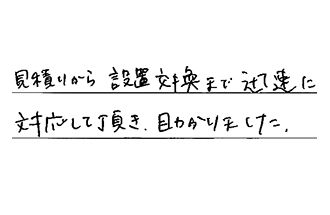 見積りから 設置交換まで 迅速に
対応して頂き、助かりました。